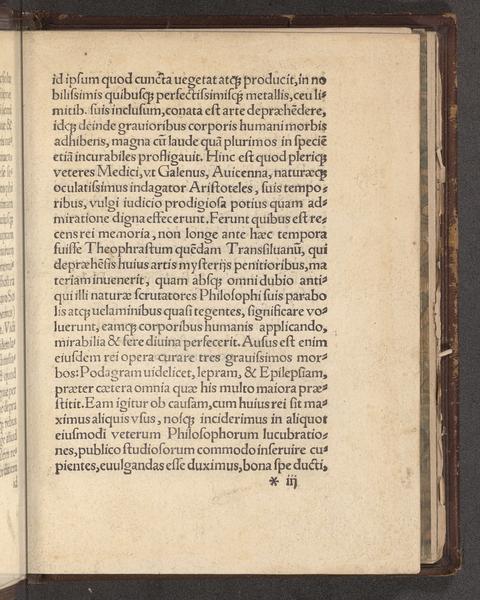 id ipsum quod cuncta uegetat atqꝫ producit, in no
bilissimis quibusqꝫ perfectissimisqꝫ metallis, ceu li⸗
mitib. suis inclusum, conata est arte depræhēdere,
idqꝫ deinde grauioribus corporis humani morbis
adhibens, magna cū laude quā plurimos in speciē
etiā incurabiles profligauit. Hinc est quod pleriqꝫ
veteres Medici, vt Galenus, Auicenna, naturæqꝫ
oculatissimus indagator Aristoteles, suis tempo⸗
ribus, vulgi iudicio prodigiosa potius quam ad⸗
miratione digna effecerunt. Ferunt quibus est re⸗
cens rei memoria, non longe ante hæc tempora
fuisse Theophrastum quēdam Transsiluanū, qui
depræhēsis huius artis mysterijs penitioribus, ma
teriam inuenerit, quam absqꝫ omni dubio anti⸗
qui illi naturæ scrutatores Philosophi suis parabo
lis atqꝫ uelaminibus quasi tegentes, significare vo⸗
luerunt, eamqꝫ corporibus humanis applicando,
mirabilia & fere diuina perfecerit. Ausus est enim
eiusdem rei opera curare tres grauissimos mor⸗
bos: Podagram uidelicet, lepram, & Epilepsiam,
præter cætera omnia quæ his multo maiora præ⸗
stitit. Eam igitur ob causam, cum huius rei sit ma⸗
ximus aliquis vsus, nosqꝫ inciderimus in aliquot
eiusmodi veterum Philosophorum lucubratio⸗
nes, publico studiosorum commodo inseruire cu⸗
pientes, euulgandas esse duximus, bona spe ducti,
* iij